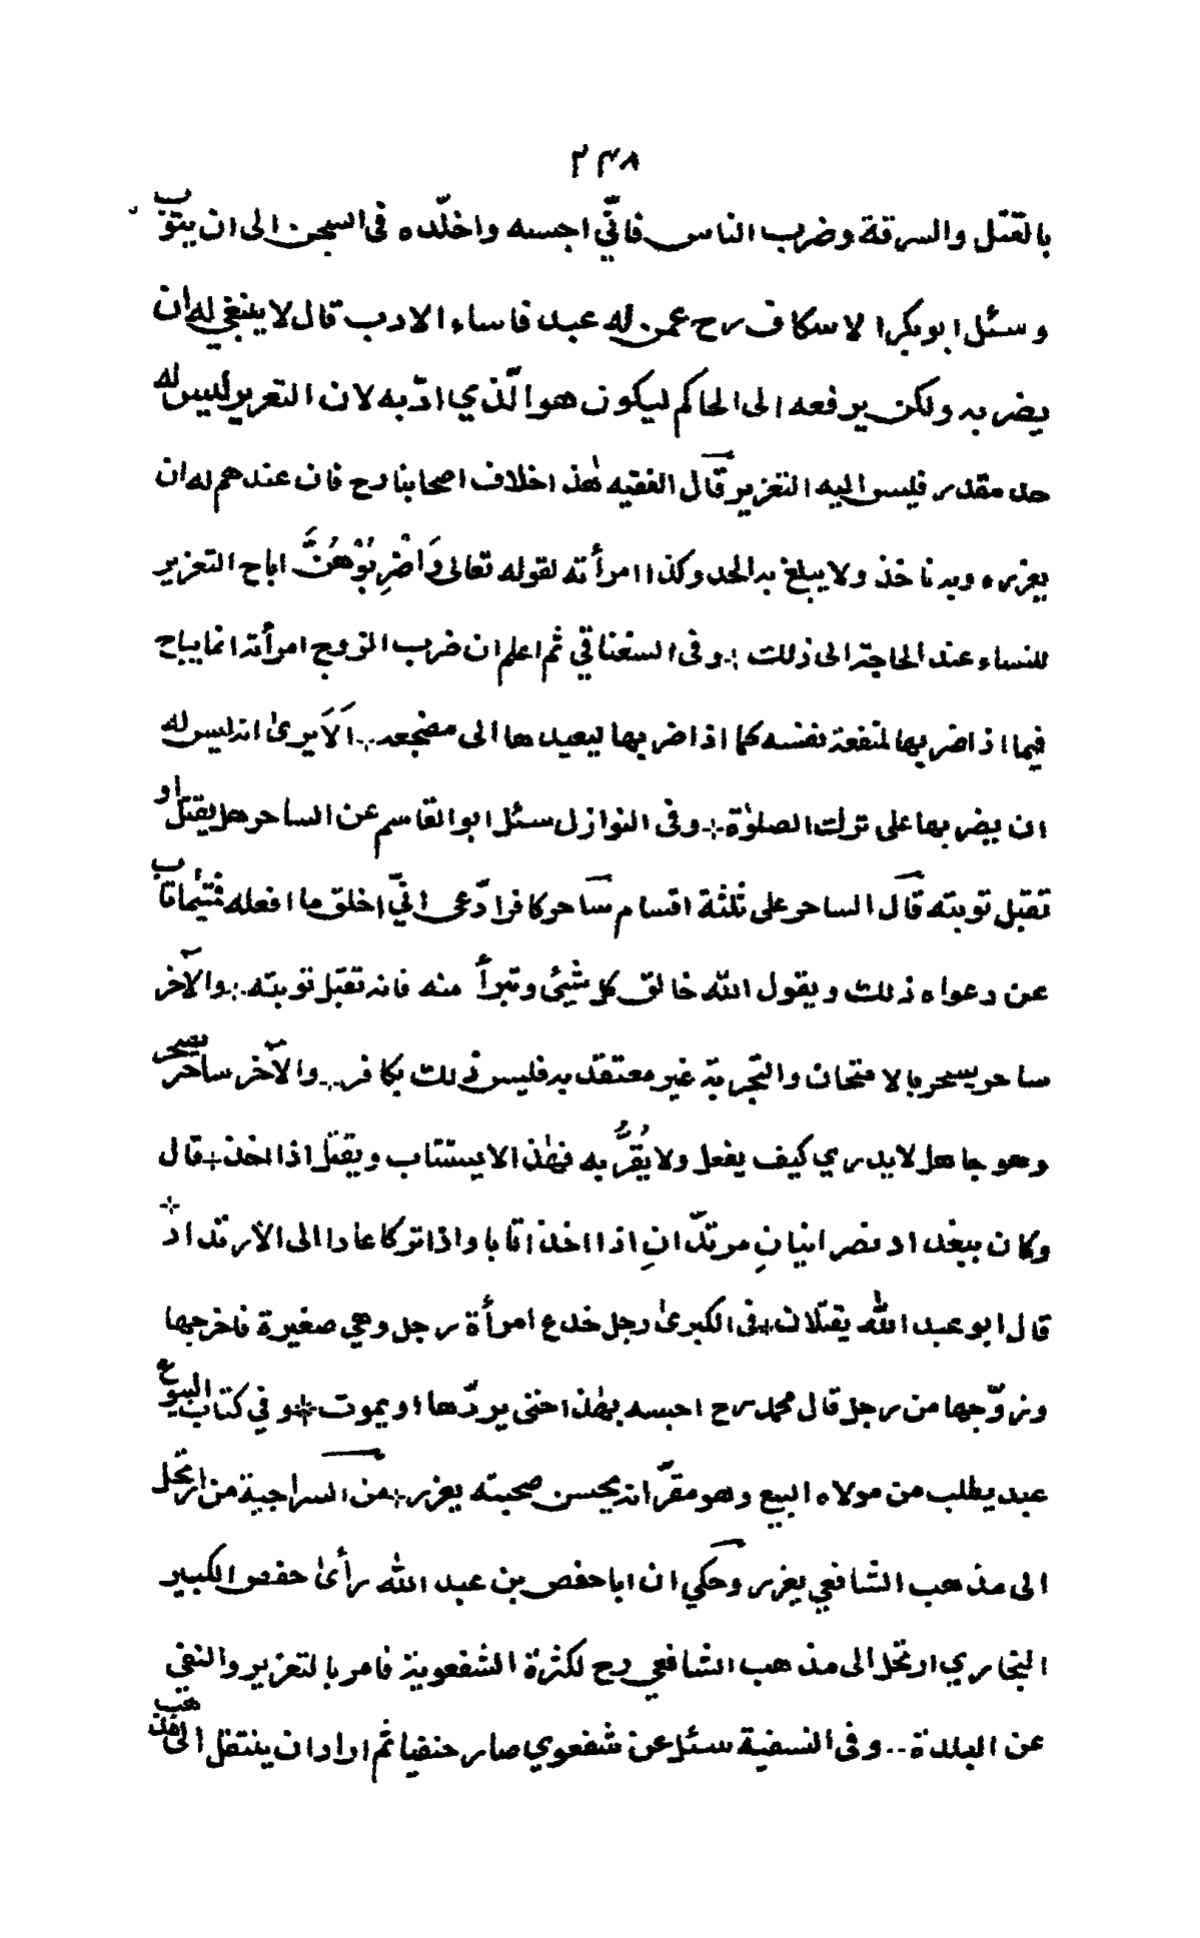 ۲۴۸
بالقتل والسرقة وضرب الناس فانّي احبسه واخلّده فى السجن الى ان يتوب
وسئل ابوبكر الاسكاف رح عمن له عبد فاساء الادب قال لا ينبغي له ان
يضربه ولكن يرفعه الى الحاكم ليكون هو الّذي ادّبه لان التعزير ليس له
حد مقدر فليس اليه التعزير قال الفقيه هٰذا خلاف اصحابنا رح فان عندهم له ان
يعزره وبه ناخذ ولا يبلغ به الحد وكذا امرأته لقوله تعالى وَاضْرِبُوْهُنَّ اباح التعزير
للنساء عند الحاجة الى ذلك ؛ وفى السغناقي ثم اعلم ان ضرب الزوج امرأته انما يباح
فيما اذا ضربها لمنفعة نفسه كما اذا ضربها ليعيدها الى مضجعه ؛ اَلَا يرىٰ انه ليس له
ان يضربها على ترك الصلوٰة ؛ وفى النوازل سئل ابو القاسم عن الساحر هل يقتل او
تقبل توبته قال الساحر على ثلثة اقسام ساحر كافر ادّعى انّي اخلق ما افعله فتيما تاب
عن دعواه ذلك ويقول اللّٰه خالق كل شيئ وتبرأ منه فانه تقبل توبته ؛ والآخر
ساحر يسحر بالامتحان والتجربة غير معتقد به فليس ذلك بكافر ؛ والآخر ساحر يسحر
وهو جاهل لا يدري كيف يفعل ولا يُقرُّ به فهٰذا لا يستتاب ويقتل اذا اخذ ؛ قال
وكان ببغداد نصرانيانِ مرتدّانِ اذا اخذا تابا واذا تركا عادا الى الارتداد ؛
قال ابو عبد اللّٰه يقتلان ؛ فى الكبرىٰ رجل خدع امرأة رجل وهي صغيرة فاخرجها
وزوّجها من رجل قال محمد رح احبسه بهٰذا حتى يردّها او يموت ؛ وفي كتاب البيوع
عبد يطلب من مولاه البيع وهو مقرّ انه يحسن صحبته يعزر ؛ من السراجية من ارتحل
الى مذهب الشافعي يعزر وحكي ان ابا حفص بن عبد اللّٰه رأىٰ حفص الكبير
البخاري ارتحل الى مذهب الشافعي رح لكثرة الشفعوية فامر بالتعزير والنفي
عن البلدة ؛ وفى النسفية سئل عن شفعوي صار حنفيا ثم اراد ان ينتقل الى مذهب